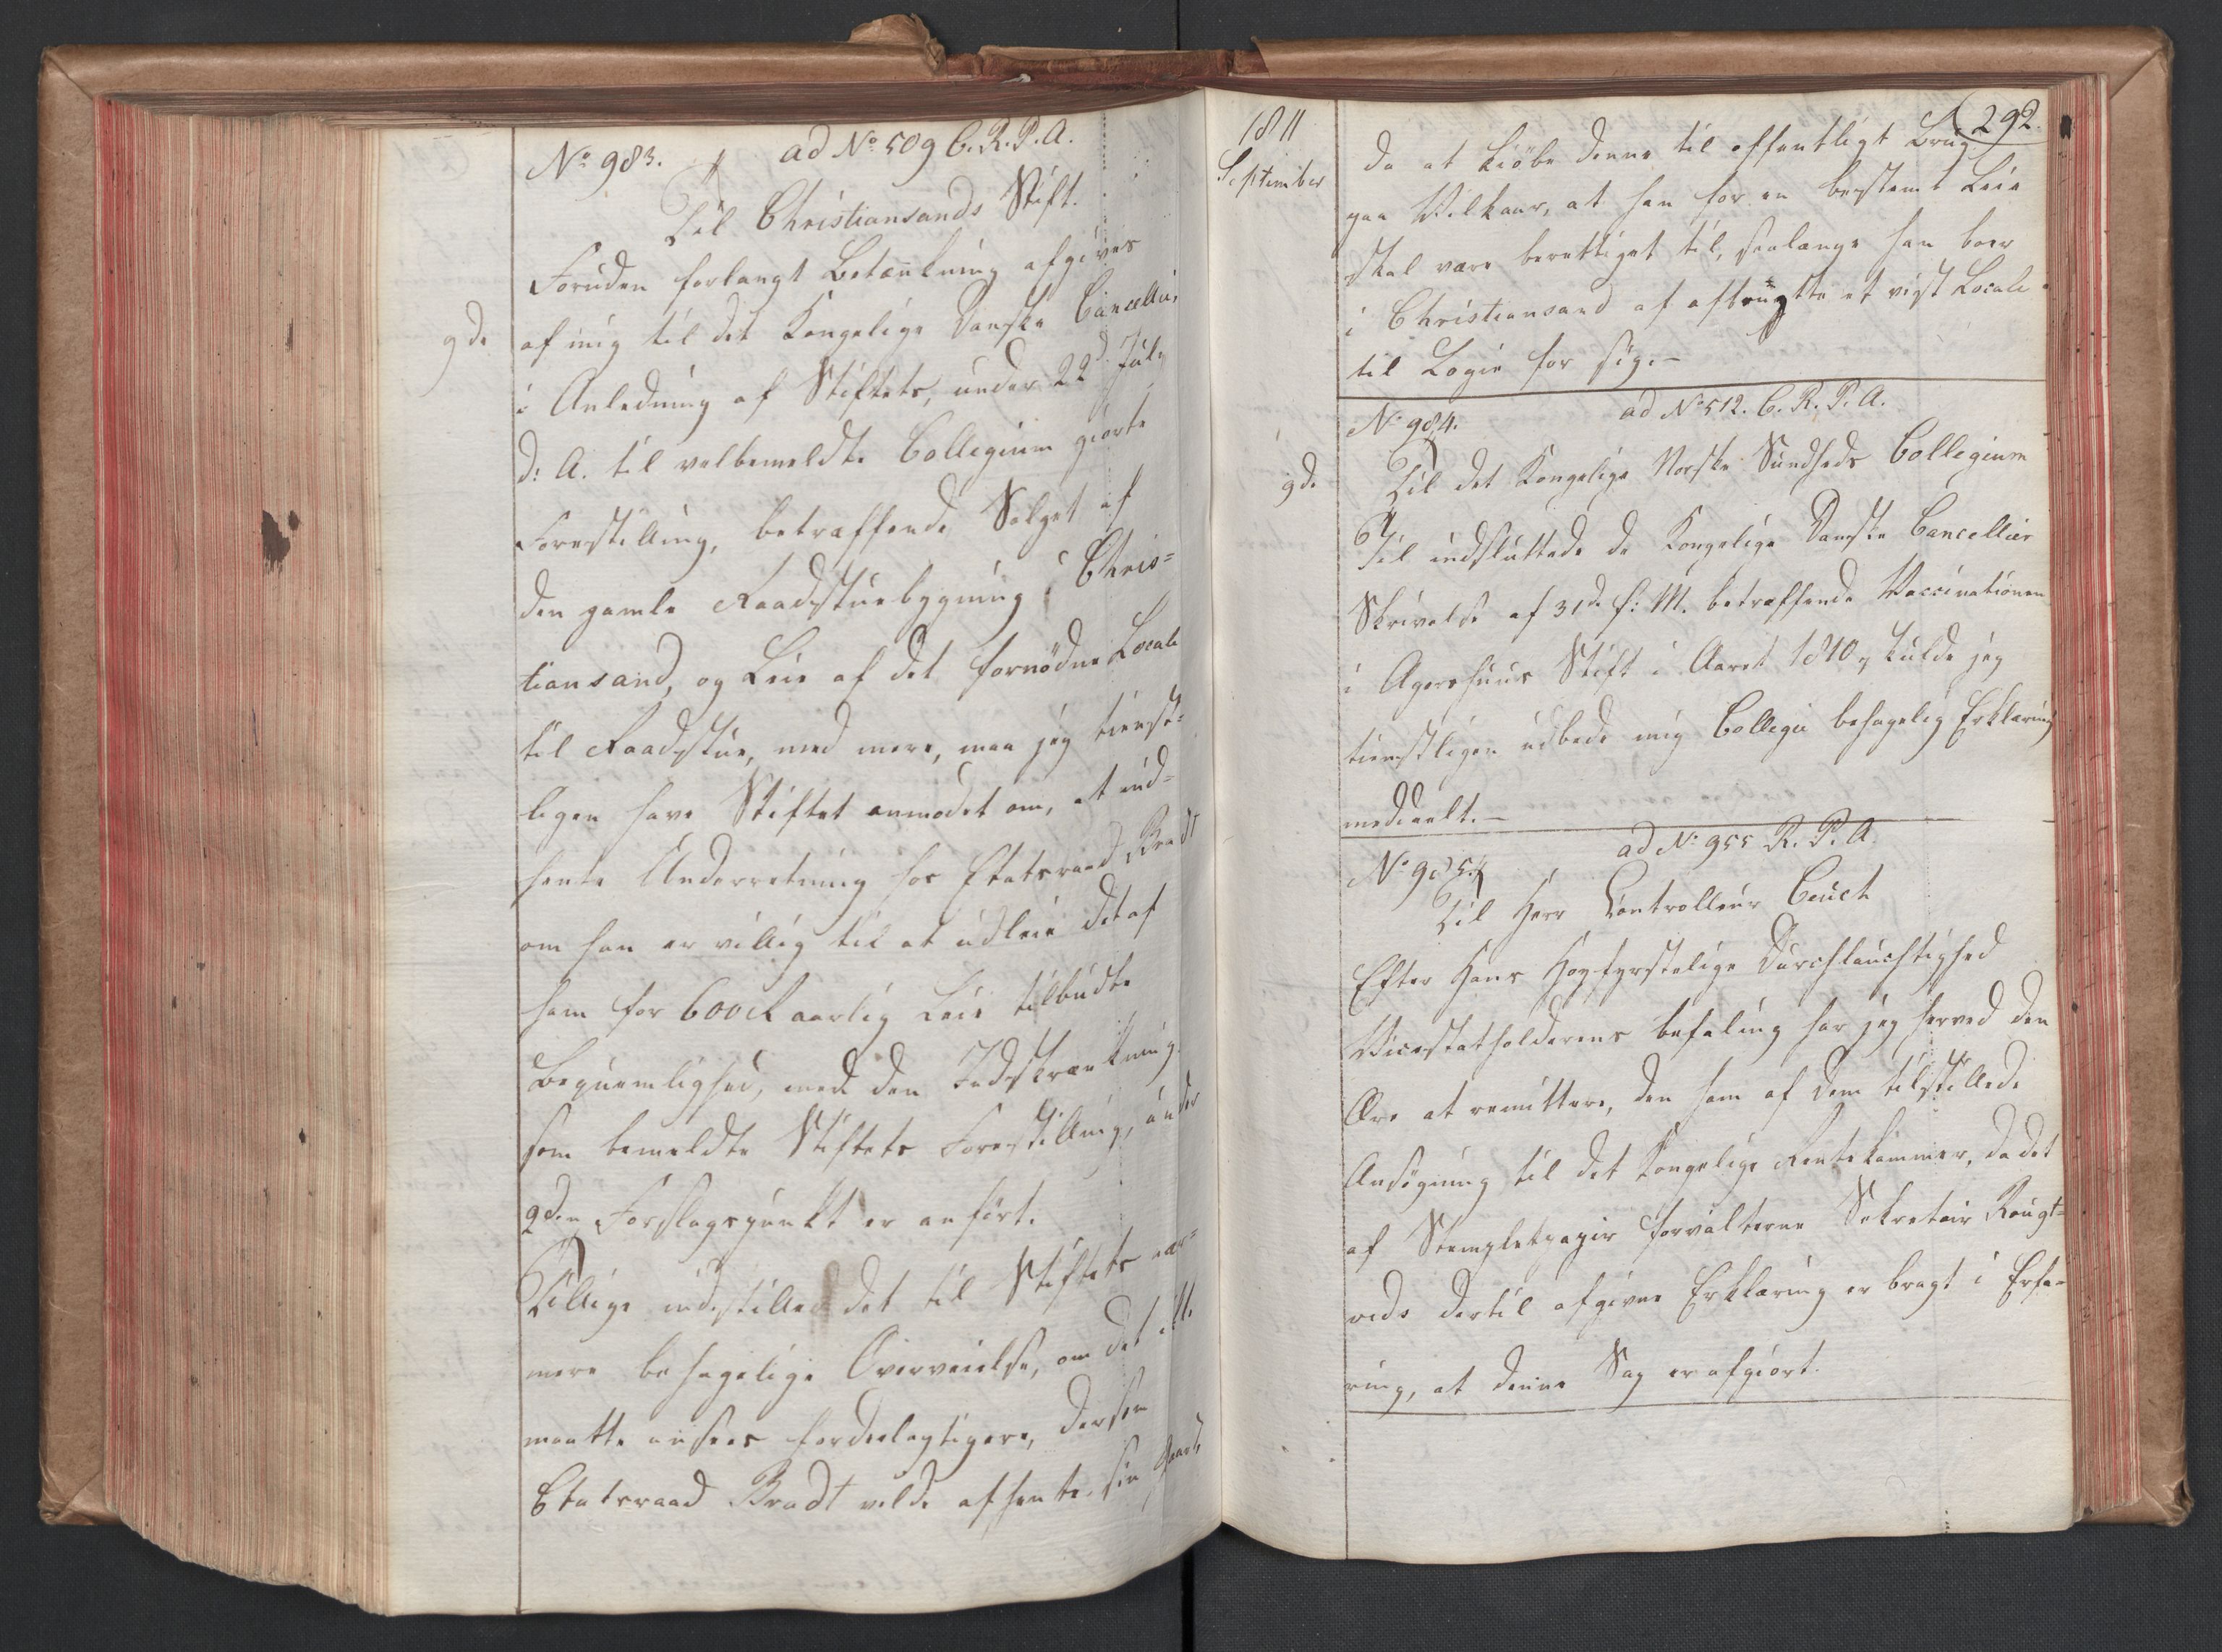 No 983. ad No 509 C. R. P. A.
Til Christiansands Stift.
Foruden forlangt Betænkning afgives
9de
af mig til det Kongelige Danske Cancellie,
i Anledning af Stiftets, under 22d July
d: A. til velbemeldte Collegium giorte
Forestilling, betræffende Salget af
den gamle Raadstuebygning i Chris=
tiansand, og Leie af det fornödne Locale
til Raadstue, med mere, maa jeg tienst=
ligen have Stiftet anmodet om, at ind=
hente Underretning hos Etatsraad Bradt
om han er villig til at udleie det af
ham for 600 Rd aarlig Leie tilbudte
Bequemlighed, med den Indskrænkning
som bemeldte Stiftets Forestilling, under
9den Forslagspunkt er anfört.
Tillige indstilled det til Stiftets nær=
mere behagelige Overveielse, om det ikke
maatte ansees fordeelagtigere, dersom
Etatsraad Bradt vilde afhente sin Gaard,
1811
September
292.
da at kiöbe denne til offentligt Brug
paa Vilkaar, at han for en bestemt Leie
skal være berettiget til, saalænge han boer
i Christiansand af afbenytte et vist Locale
til Logie for sig.-
No 984. ad No 512. C. R. P. A.
9de
Til det Kongelige Norske Sundheds Collegium
Til indsluttede de Kongelige Danske Cancellies
Skrivelse af 31de f: M. betræffende Vaccinationen
i Agershuus Stift i Aaret 1810, skulde jeg
tienstligen udbede mig Collegii behagelig Erklæring
meddeelt.-
No 985. ad No 955 R. P. A.
Til Herr Controlleur
Efter Hans Høyfyrstelige Durchlauchtighed
Vicestatholderens befaling har jeg herved den
Ære at remittere, den ham af Dem tilstillede
Ansögning til det Kongelige Rentekammer, da det
af Stempletpapir forvalterne Sekretair Rougt=
veds dertil afgivne Erklæring er bragt i Erfa=
ring, at denne Sag er afgiort.